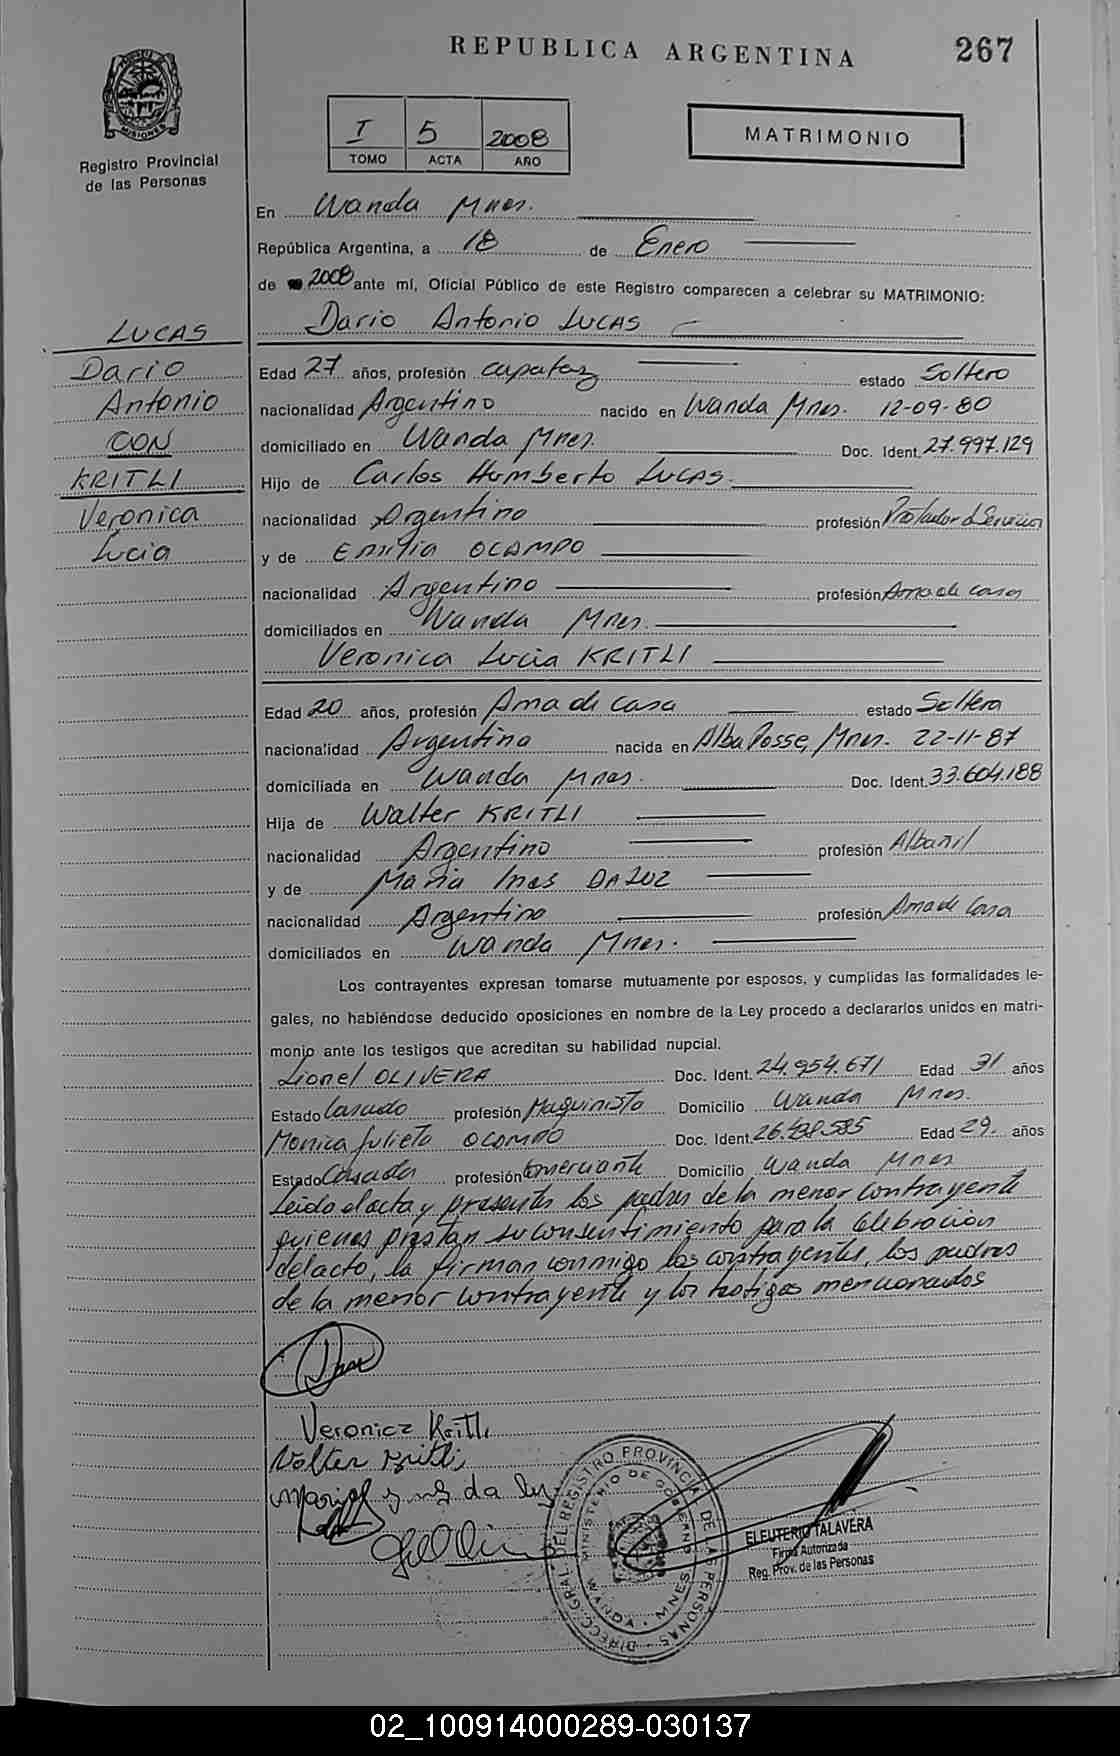 REPUBLICA ARGENTINA 267
MISIONES
Registro Provincial
de las Personas
I 5 2008
TOMO ACTA AÑO
MATRIMONIO
En Wanda Mnes.
República Argentina, a 18 de Enero
de 2008 ante mí, Oficial Público de este Registro comparecen a celebrar su MATRIMONIO:
Dario Antonio LUCAS
LUCAS
Dario
Antonio
CON
KRITLI
Veronica
Lucia
Edad 27 años, profesión capataz estado Soltero
nacionalidad Argentino nacido en Wanda Mnes. 12-09-80
domiciliado en Wanda Mnes. Doc. Ident. 27.997.129
Hijo de Carlos Humberto LUCAS.
nacionalidad Argentino profesión Prestador d Servicios
y de Emilia OCAMPO
nacionalidad Argentino profesión Ama de casa
domiciliados en Wanda Mnes.
Veronica Lucia KRITLI
Edad 20 años, profesión Ama de casa estado Soltera
nacionalidad Argentina nacida en Alba Posse, Mnes. 22-11-87
domiciliada en Wanda Mnes. Doc. Ident. 33.604.188
Hija de Walter KRITLI
nacionalidad Argentino profesión Albañil
y de Maria Ines DA LUZ
nacionalidad Argentina profesión Ama de Casa
domiciliados en Wanda Mnes.
Los contrayentes expresan tomarse mutuamente por esposos, y cumplidas las formalidades le-
gales, no habiéndose deducido oposiciones en nombre de la Ley procedo a declararlos unidos en matri-
monio ante los testigos que acreditan su habilidad nupcial.
Lionel OLIVERA Doc. Ident. 24.954.671 Edad 31 años
Estado Casado profesión Maquinista Domicilio Wanda Mnes.
Monica Julieta OCAMPO Doc. Ident. Edad 29. años
Estado Casada profesión Comerciante Domicilio Wanda Mnes
Leida el acta y presente los padres de la menor contrayente
quienes prestan su consentimiento para la celebracion
del acto, la firman conmigo los contrayentes, los padres
de la menor contrayente y los testigos mencionados
Veronica Kritli
Walter Kritli
Maria Ines da luz
DIRECC. GRAL. DEL REGISTRO PROVINCIAL DE LAS PERSONAS
MINISTERIO DE GOBIERNO
WANDA - MNES
ELEUTERIO TALAVERA
Firma Autorizada
Reg. Prov. de las Personas
02_100914000289-030137